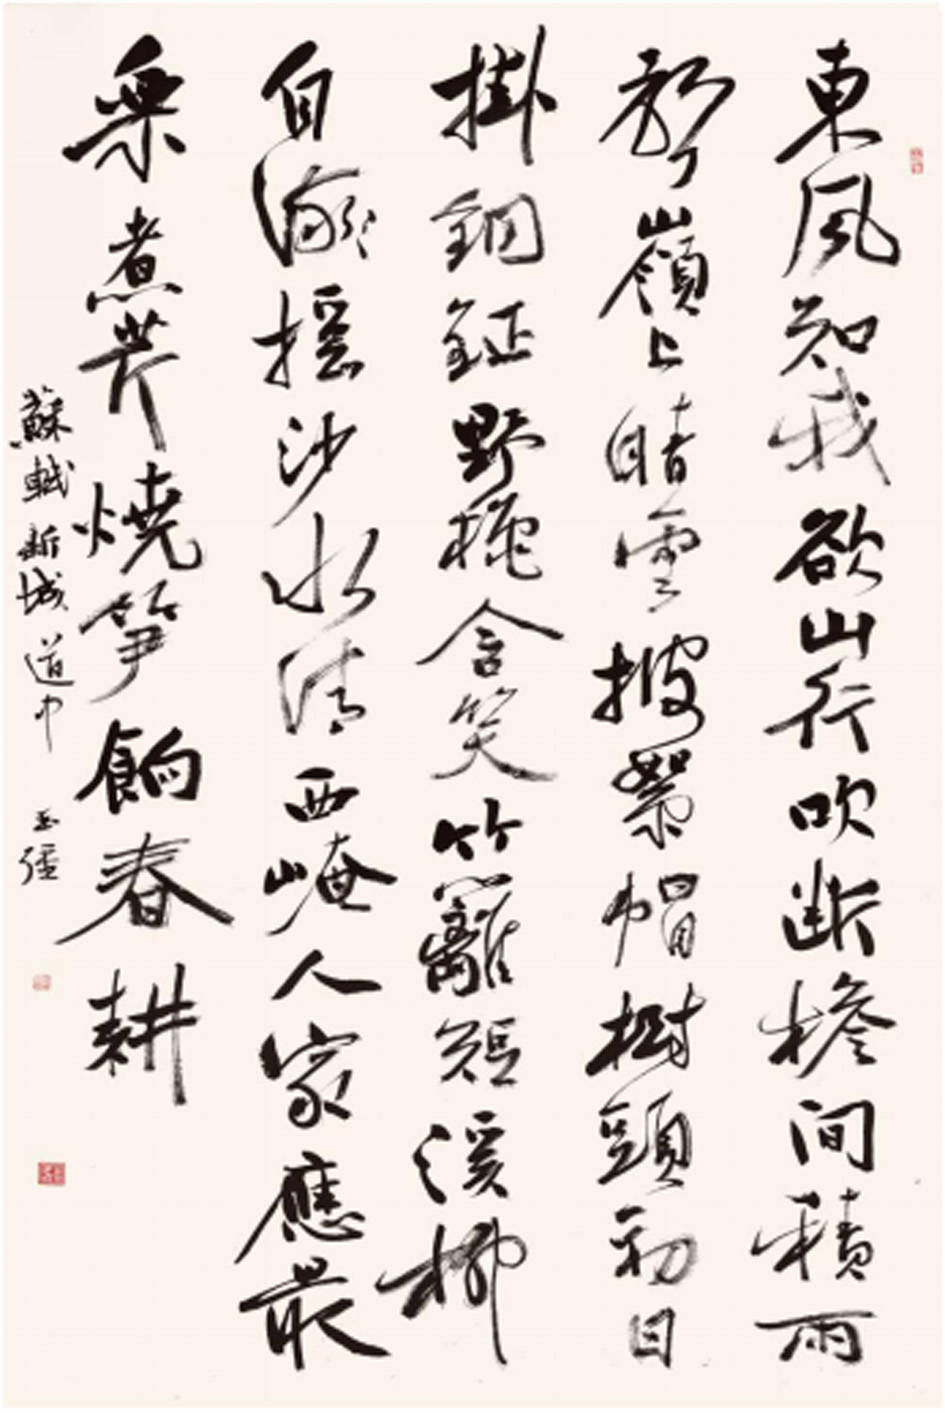 東風知我欲山行吹斷檐間積雨
聲嶺上晴雲披絮帽樹頭初日
掛銅鉦野桃含笑竹籬短溪柳
自搖沙水清西崦人家應最
樂煮芹燒筍餉春耕
蘇軾新城道中